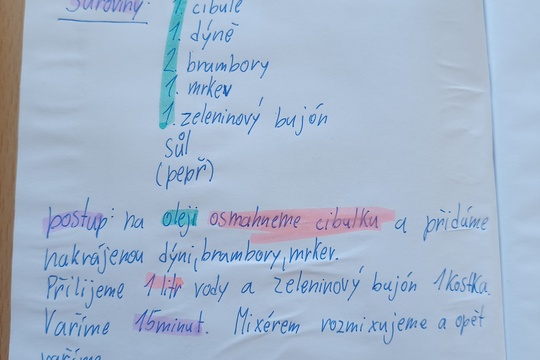 Suroviny:
1. cibule
1. dýně
2. brambory
1. mrkev
1. zeleninový bujón
sůl
(pepř)
postup: na oleji osmahneme cibulku a přidáme
nakrájenou dýni, brambory, mrkev.
Přilijeme 1 litr vody a zeleninový bujón 1 kostka.
Vaříme 15 minut. Mixérem rozmixujeme a opět
vaříme